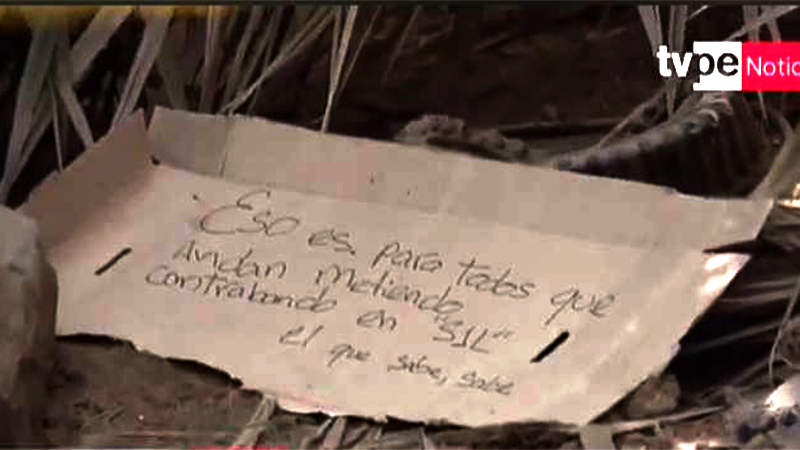 tvpe Notic
Eso es. para todos que
Andan metiendo
contrabando en "SIL"
el que sabe, sabe